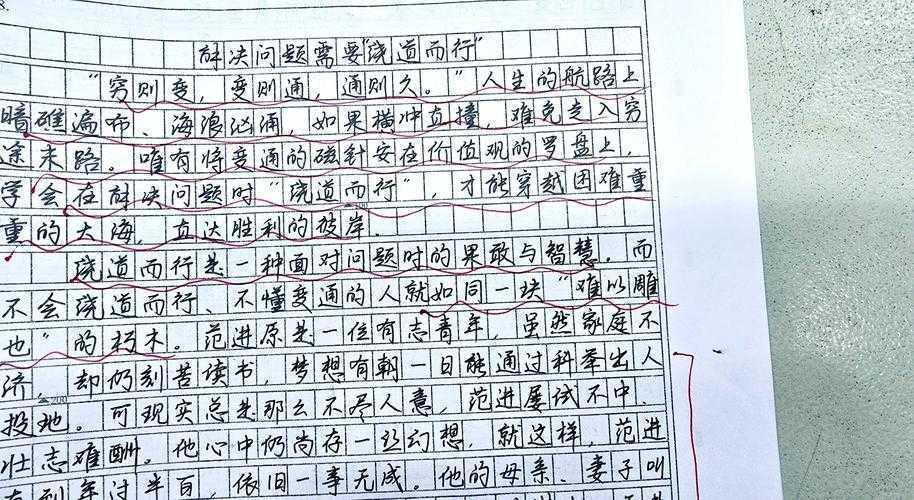 8.
解决问题需要“绕道而行”
“穷则变，变则通，通则久。”人生的航路上
暗礁遍布、海浪汹涌，如果横冲直撞，难免走入穷
途末路。唯有将变通的磁针安在价值观的罗盘上，
学会在解决问题时“绕道而行”，才能穿越困难重
重的大海，直达胜利的彼岸.
绕道而行是一种面对问题时的果敢与智慧.而
不会绕道而行、不懂变通的人就如同一块“难以雕
也”的朽木。范进原是一位有志青年，虽然家庭不
济，却仍刻苦读书，梦想有朝一日能通过科举出人
投地。可现实总是那么不尽人意，范进屡试不中，
200
壮志难酬。他心中仍尚存一丝幻想，就这样，范进
到年过半百，依旧一事无成。他的母亲、妻子叫